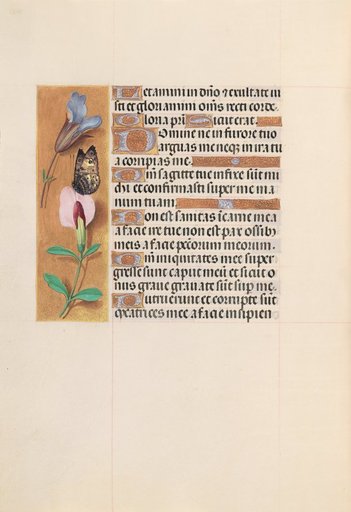 Letamini in dño ⁊ exultate iu
sti et gloriamini om̃s recti corde.
Gloria pr̃i Sicut erat.
Domine ne in furore tuo
arguas me neq̃ in ira tu
a corripias me.
Qm̃ sagitte tue infixe sũt mi
chi et confirmasti super me ma
num tuam.
Non est sanitas ĩ carne mea
a facie ire tue non est pax ossib̃
meis a facie pec̃orum meorum.
Qm̃ iniquitates mee super
gresse sunt caput meũ et sicut o
nus graue grauate sũt sup̃ me.
Putruerunt et corrupte sũt
cicatrices mee a facie insipien